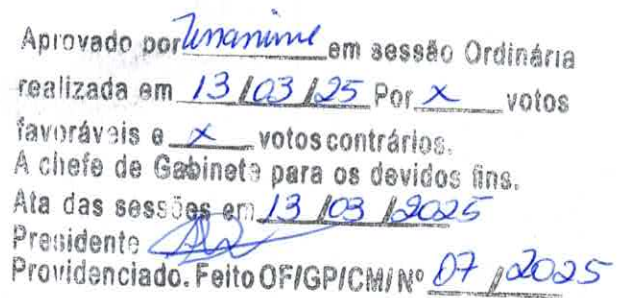 Aprovado por Unanime em sessão Ordinária
realizada em 13/03/25 Por x votos
favoráveis e x votos contrários.
A chefe de Gabinete para os devidos fins.
Ata das sessões em 13/03/2025
Presidente
Providenciado. Feito OF/GP/CM/Nº 07/2025